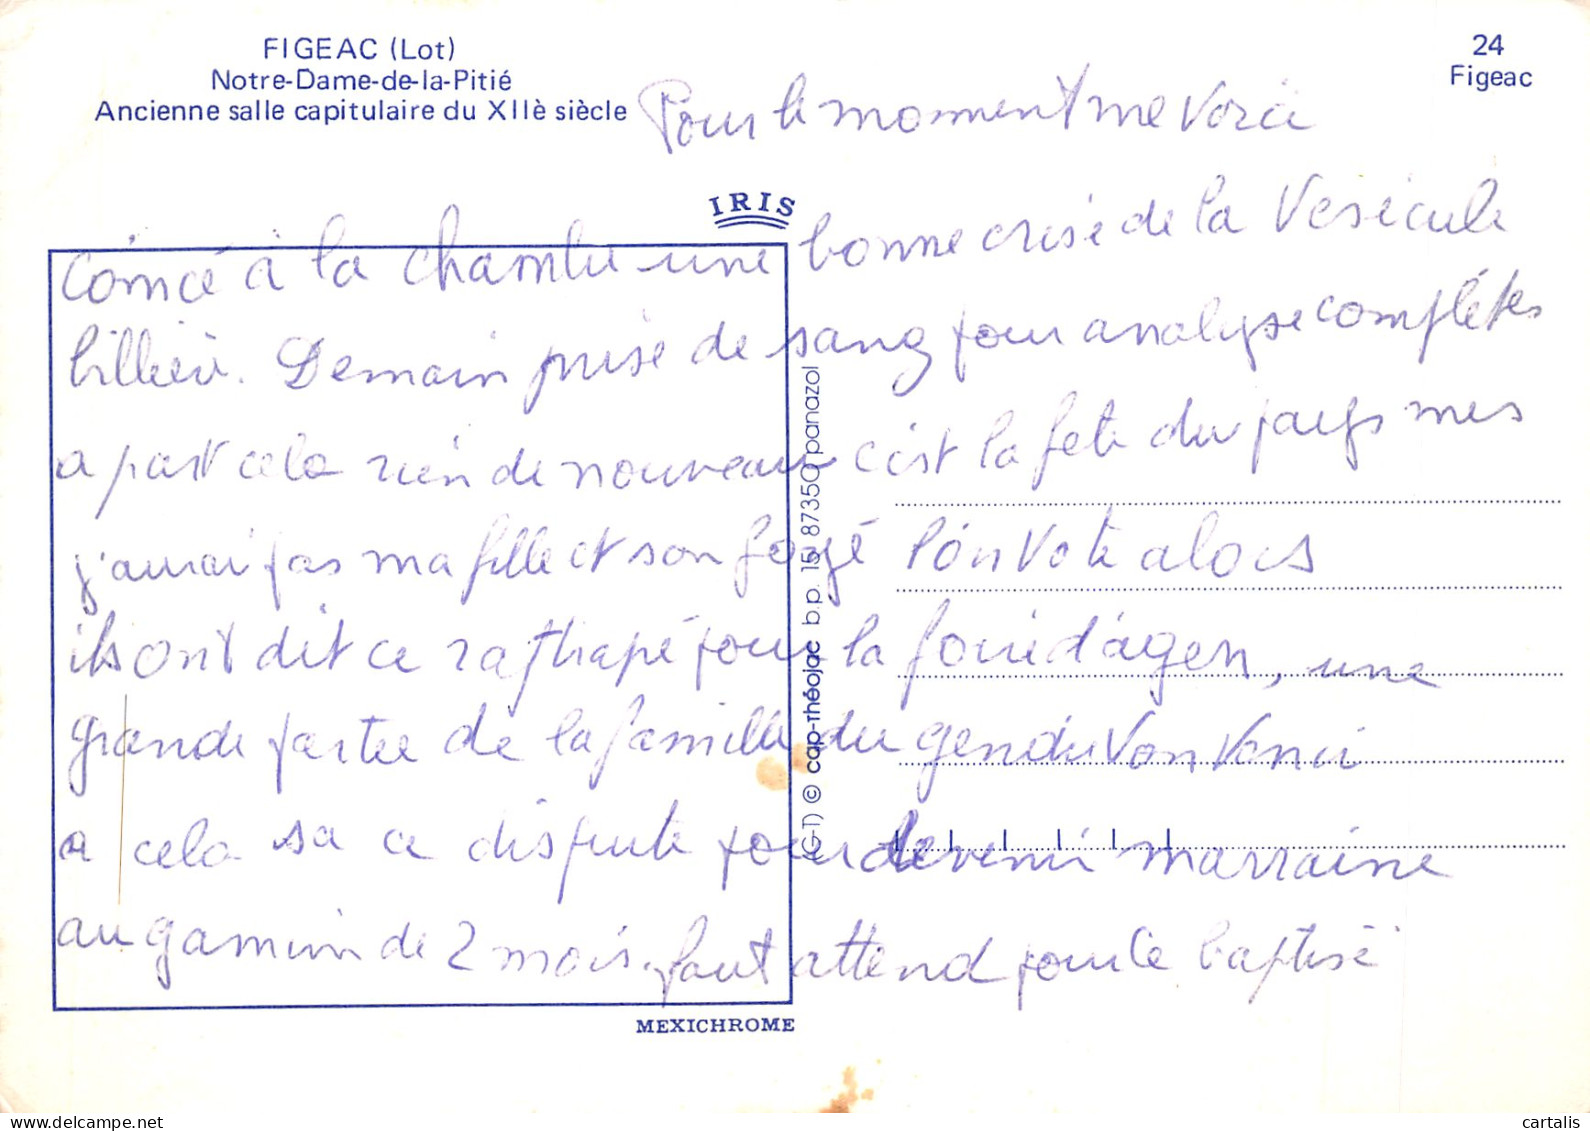 FIGEAC (Lot)
Notre-Dame-de-la-Pitié
Ancienne salle capitulaire du XIIè siècle
24
Figeac
Pour le moment me voici
IRIS
coincé à la chambre une bonne crise de la Vésécule
billière. Demain prise de sang pour analyse complètes
a part cela rien de nouveau c'est la fête du pays mes
j'aurai pas ma fille et son foyé l'on Vote alors
ils ont dit ce rathrapé pour la foire d'agen, une
grande partee de la famille du gendre Von Venir
a cela sa ce dispute pour devenir marraine
au gamin de 2 mois. faut attend pour le baptise
(G-1) © cap-théojac b.p. 15 87350 panazol
MEXICHROME
cartalis